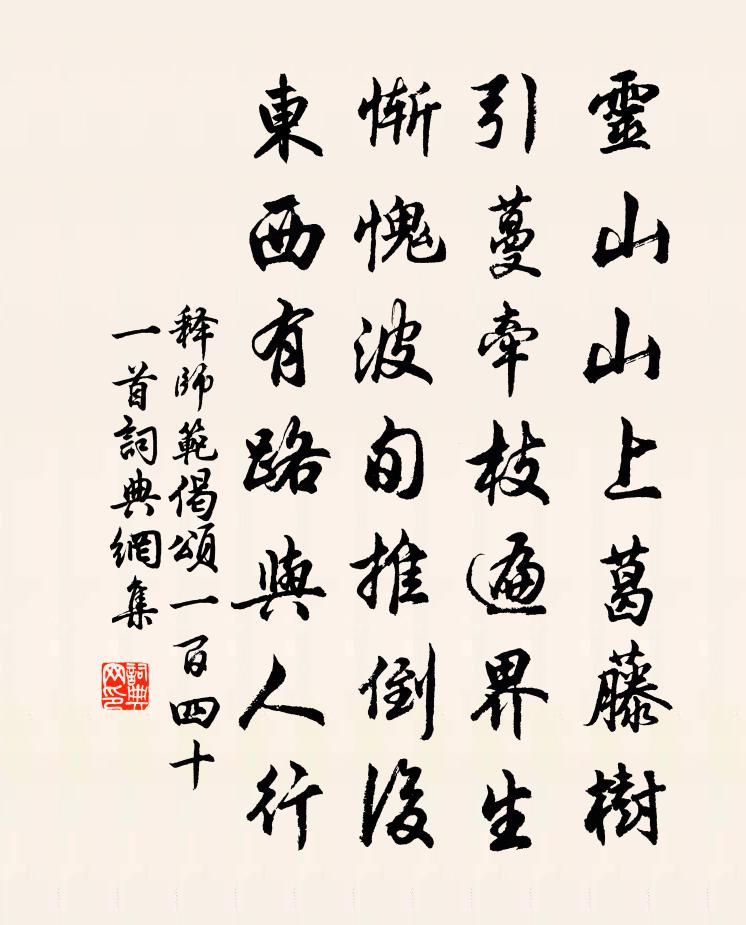 靈山山上葛藤樹
引蔓牽枝遍界生
慚愧波旬推倒後
東西有路與人行
释師範偈頌一百四十
一首詞典網集
詞典网印